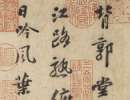 背郭堂
江路熟俯
日吟風葉